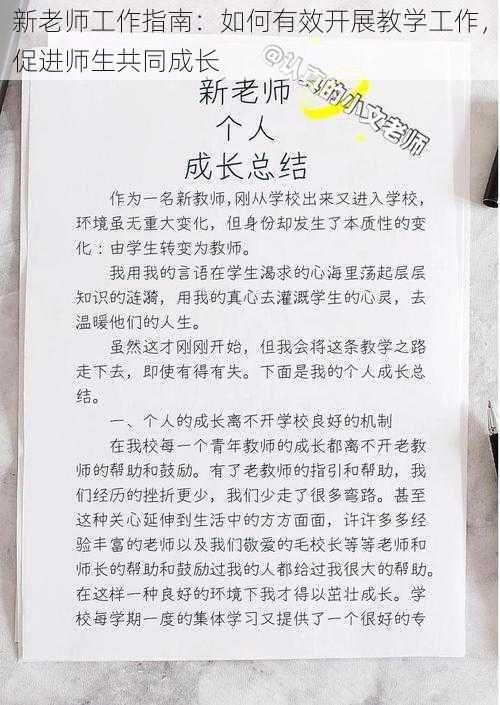 新老师工作指南：如何有效开展教学工作，
促进师生共同成长
@认真的小文老师
新老师
个人
成长总结
作为一名新教师,刚从学校出来又进入学校,
环境虽无重大变化，但身份却发生了本质性的变
化：由学生转变为教师。
我用我的言语在学生渴求的心海里荡起层层
知识的涟漪，用我的真心去灌溉学生的心灵，去
温暖他们的人生。
虽然这才刚刚开始，但我会将这条教学之路
走下去，即使有得有失。下面是我的个人成长总
结。
一、个人的成长离不开学校良好的机制
在我校每一个青年教师的成长都离不开老教
师的帮助和鼓励。有了老教师的指引和帮助，我
们经历的挫折更少，我们少走了很多弯路。甚至
这种关心延伸到生活中的方方面面，许许多多经
验丰富的老师以及我们敬爱的毛校长等等老师和
师长的帮助和鼓励过我的人都给过我很大的帮助。
在这样一种良好的环境下我才得以茁壮成长。学
校每学期一度的集体学习又提供了一个很好的专